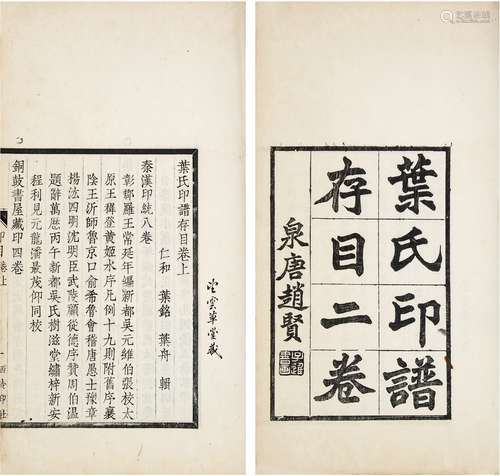 葉氏印譜
存目二卷
泉唐趙賢
葉氏印譜存目卷上
仁和 葉銘 葉舟 輯
秦漢印統八卷
彰郡羅王常延年編新都吳元維伯張校太
原王穉登黃姬水序凡例十九則附舊序襄
陰王沂師魯京口俞希魯會稽唐愚士豫章
揚汯四明沈明臣武陵顧從德序贊周伯溫
題辭萬歷丙午新都吳氏樹滋堂繡梓新安
程利見元龍潘最茂仰同校
銅鼓書屋藏印四卷
印目卷上
西泠印社